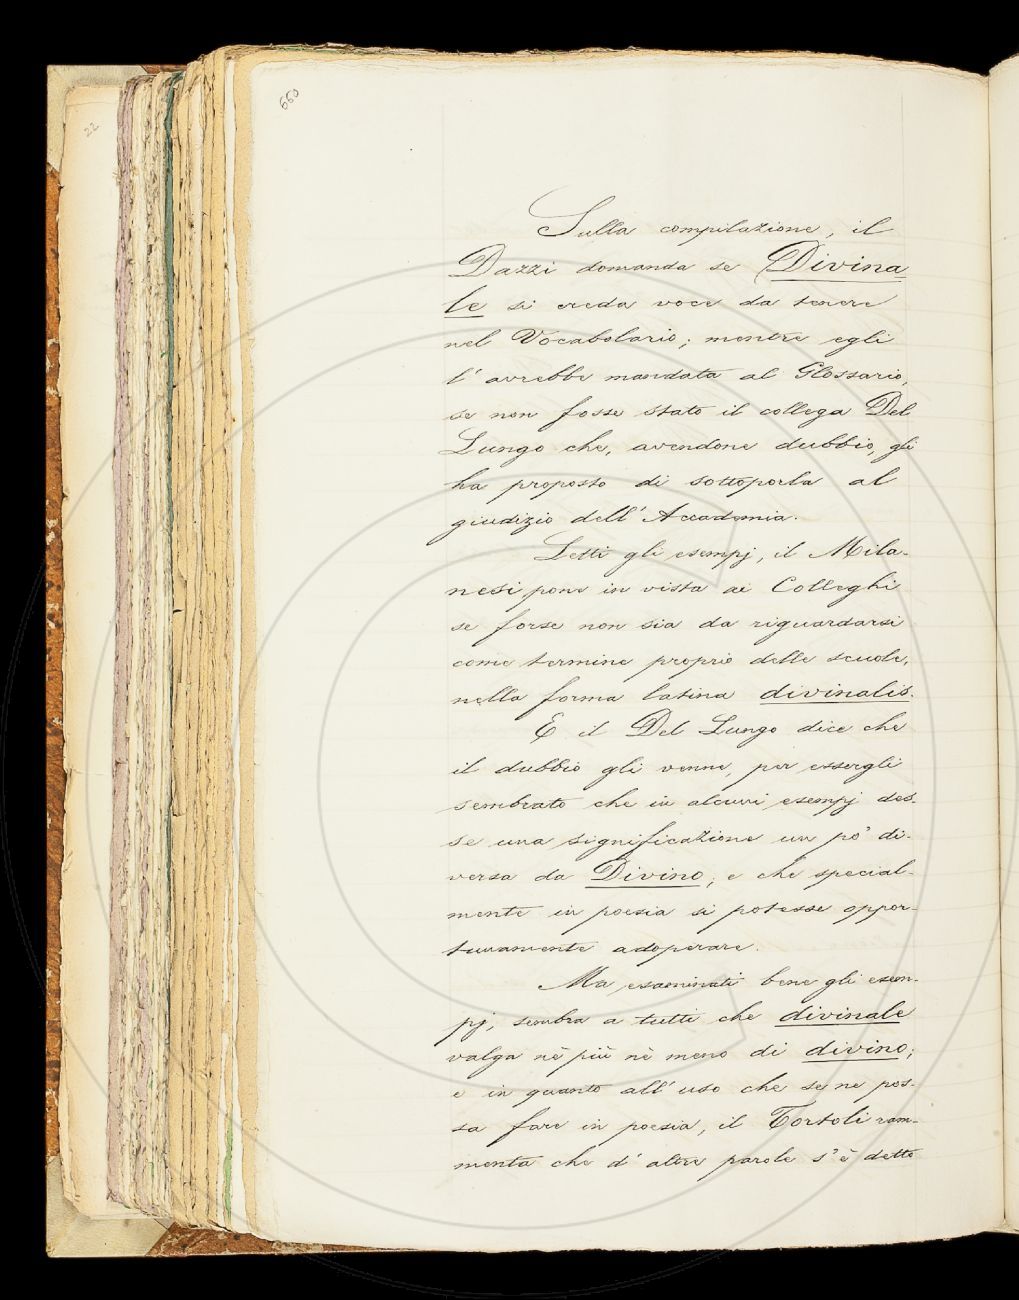 22
660
Sulla compilazione, il
Dazzi domanda se Divina
le si creda voce da tenere
nel Vocabolario; mentre egli
l' avrebbe mandata al Glossario,
se non fosse stato il collega Del
Lungo che, avendone dubbio, gli
ha proposto di sottoporla al
giudizio dell' Accademia.
Letti gli esempj, il Mila-
nesi pone in vista ai Colleghi
se forse non sia da riguardarsi
come termine proprio delle scuole,
nella forma latina divinalis.
E il Del Lungo dice che
il dubbio gli venne, per essergli
sembrato che in alcuni esempj des-
se una significazione un po' di-
versa da Divino, e che special-
mente in poesia si potesse oppor-
tunamente adoperare.
Ma esaminati bene gli esem-
pj, sembra a tutti che divinale
valga nè più nè meno di divino;
e in quanto all' uso che se ne pos-
sa fare in poesia, il Tortoli ram-
menta che d' altre parole s' è detto